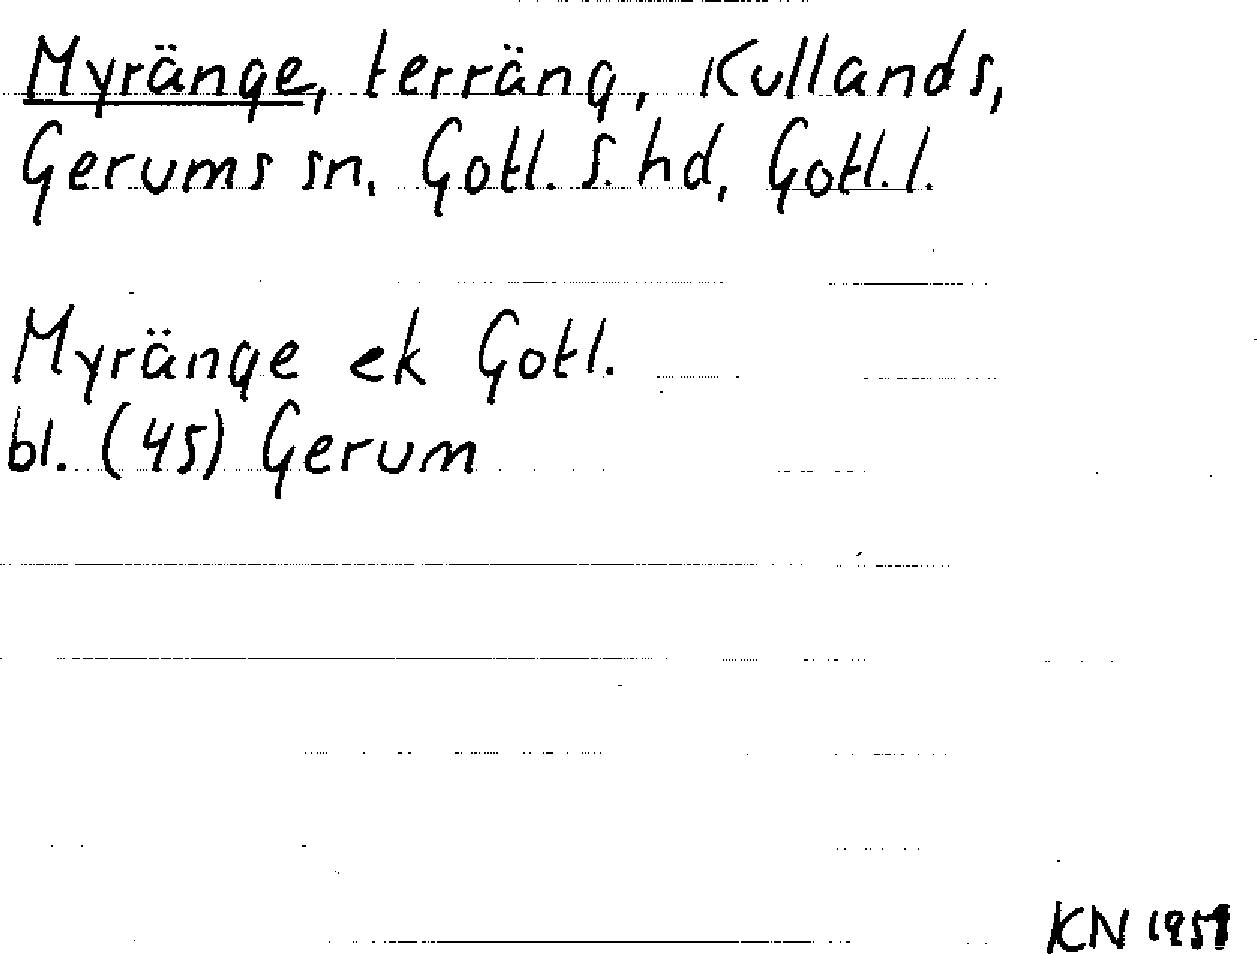 Myränge, terräng, Kullands,
Gerums sn, Gotl. S. hd, Gotl. l.
Myränge ek Gotl.
bl. (45) Gerum
KN